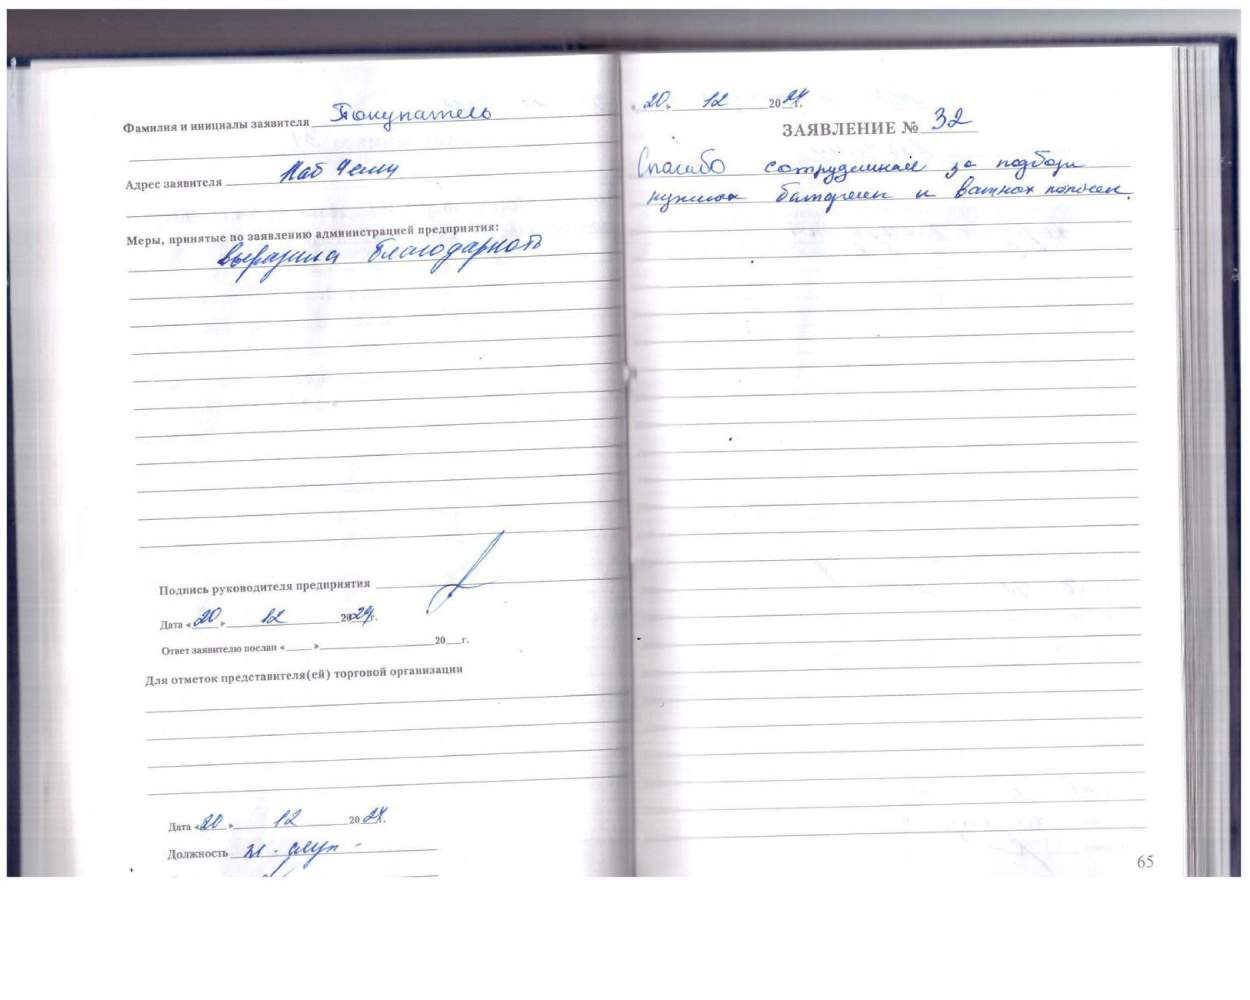 Фамилия и инициалы заявителя Покупатель
Адрес заявителя Наб Челны
Меры, принятые по заявлению администрацией предприятия:
выразила благодарность
Подпись руководителя предприятия
Дата «20» 12 2024г.
Ответ заявителю послан « » 20 г.
Для отметок представителя(ей) торговой организации
Дата «20» 12 2024.
Должность
«20» 12 2024г.
ЗАЯВЛЕНИЕ № 32
Спасибо сотрудникам за подбор
нужных батареек и ватных палочек.
65